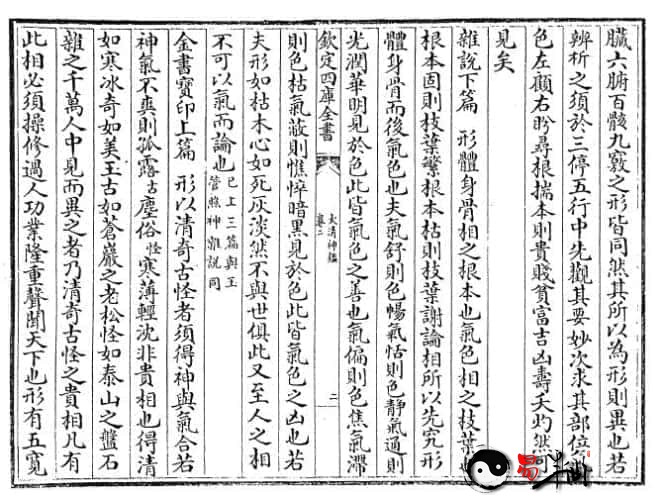 臟六腑百骸九竅之形皆同然其所以為形則異也若
辨析之須於三停五行中先觀其要妙次求其部位
色左顧右盻尋根揣本則貴賤貧富吉凶壽夭灼然
見矣
雜說下篇 形體身骨相之根本也氣色相之枝葉
根本固則枝葉繁根本枯則枝葉謝論相所以先究形
體身骨而後氣色也夫氣舒則色暢氣恬則色靜氣通則
光潤華明見於色此皆氣色之善也氣偏則色焦氣滯
欽定四庫全書
太清神鑑
卷二
二
則色枯氣蔽則憔悴暗黑見於色此皆氣色之凶也若
夫形如枯木心如死灰淡然不與世俱此又至人之相
不可以氣而論也已上三篇與王
管照神雜說同
金書寶印上篇 形以清奇古怪者須得神與氣合若
神氣不爽則孤露古塵俗怪寒薄輕沈非貴相也得清
如寒冰奇如美玉古如蒼巖之老松怪如泰山之盤石
雜之千萬人中見而異之者乃清奇古怪之貴相凡有
此相必須操修過人功業隆重聲聞天下也形有五寬
易